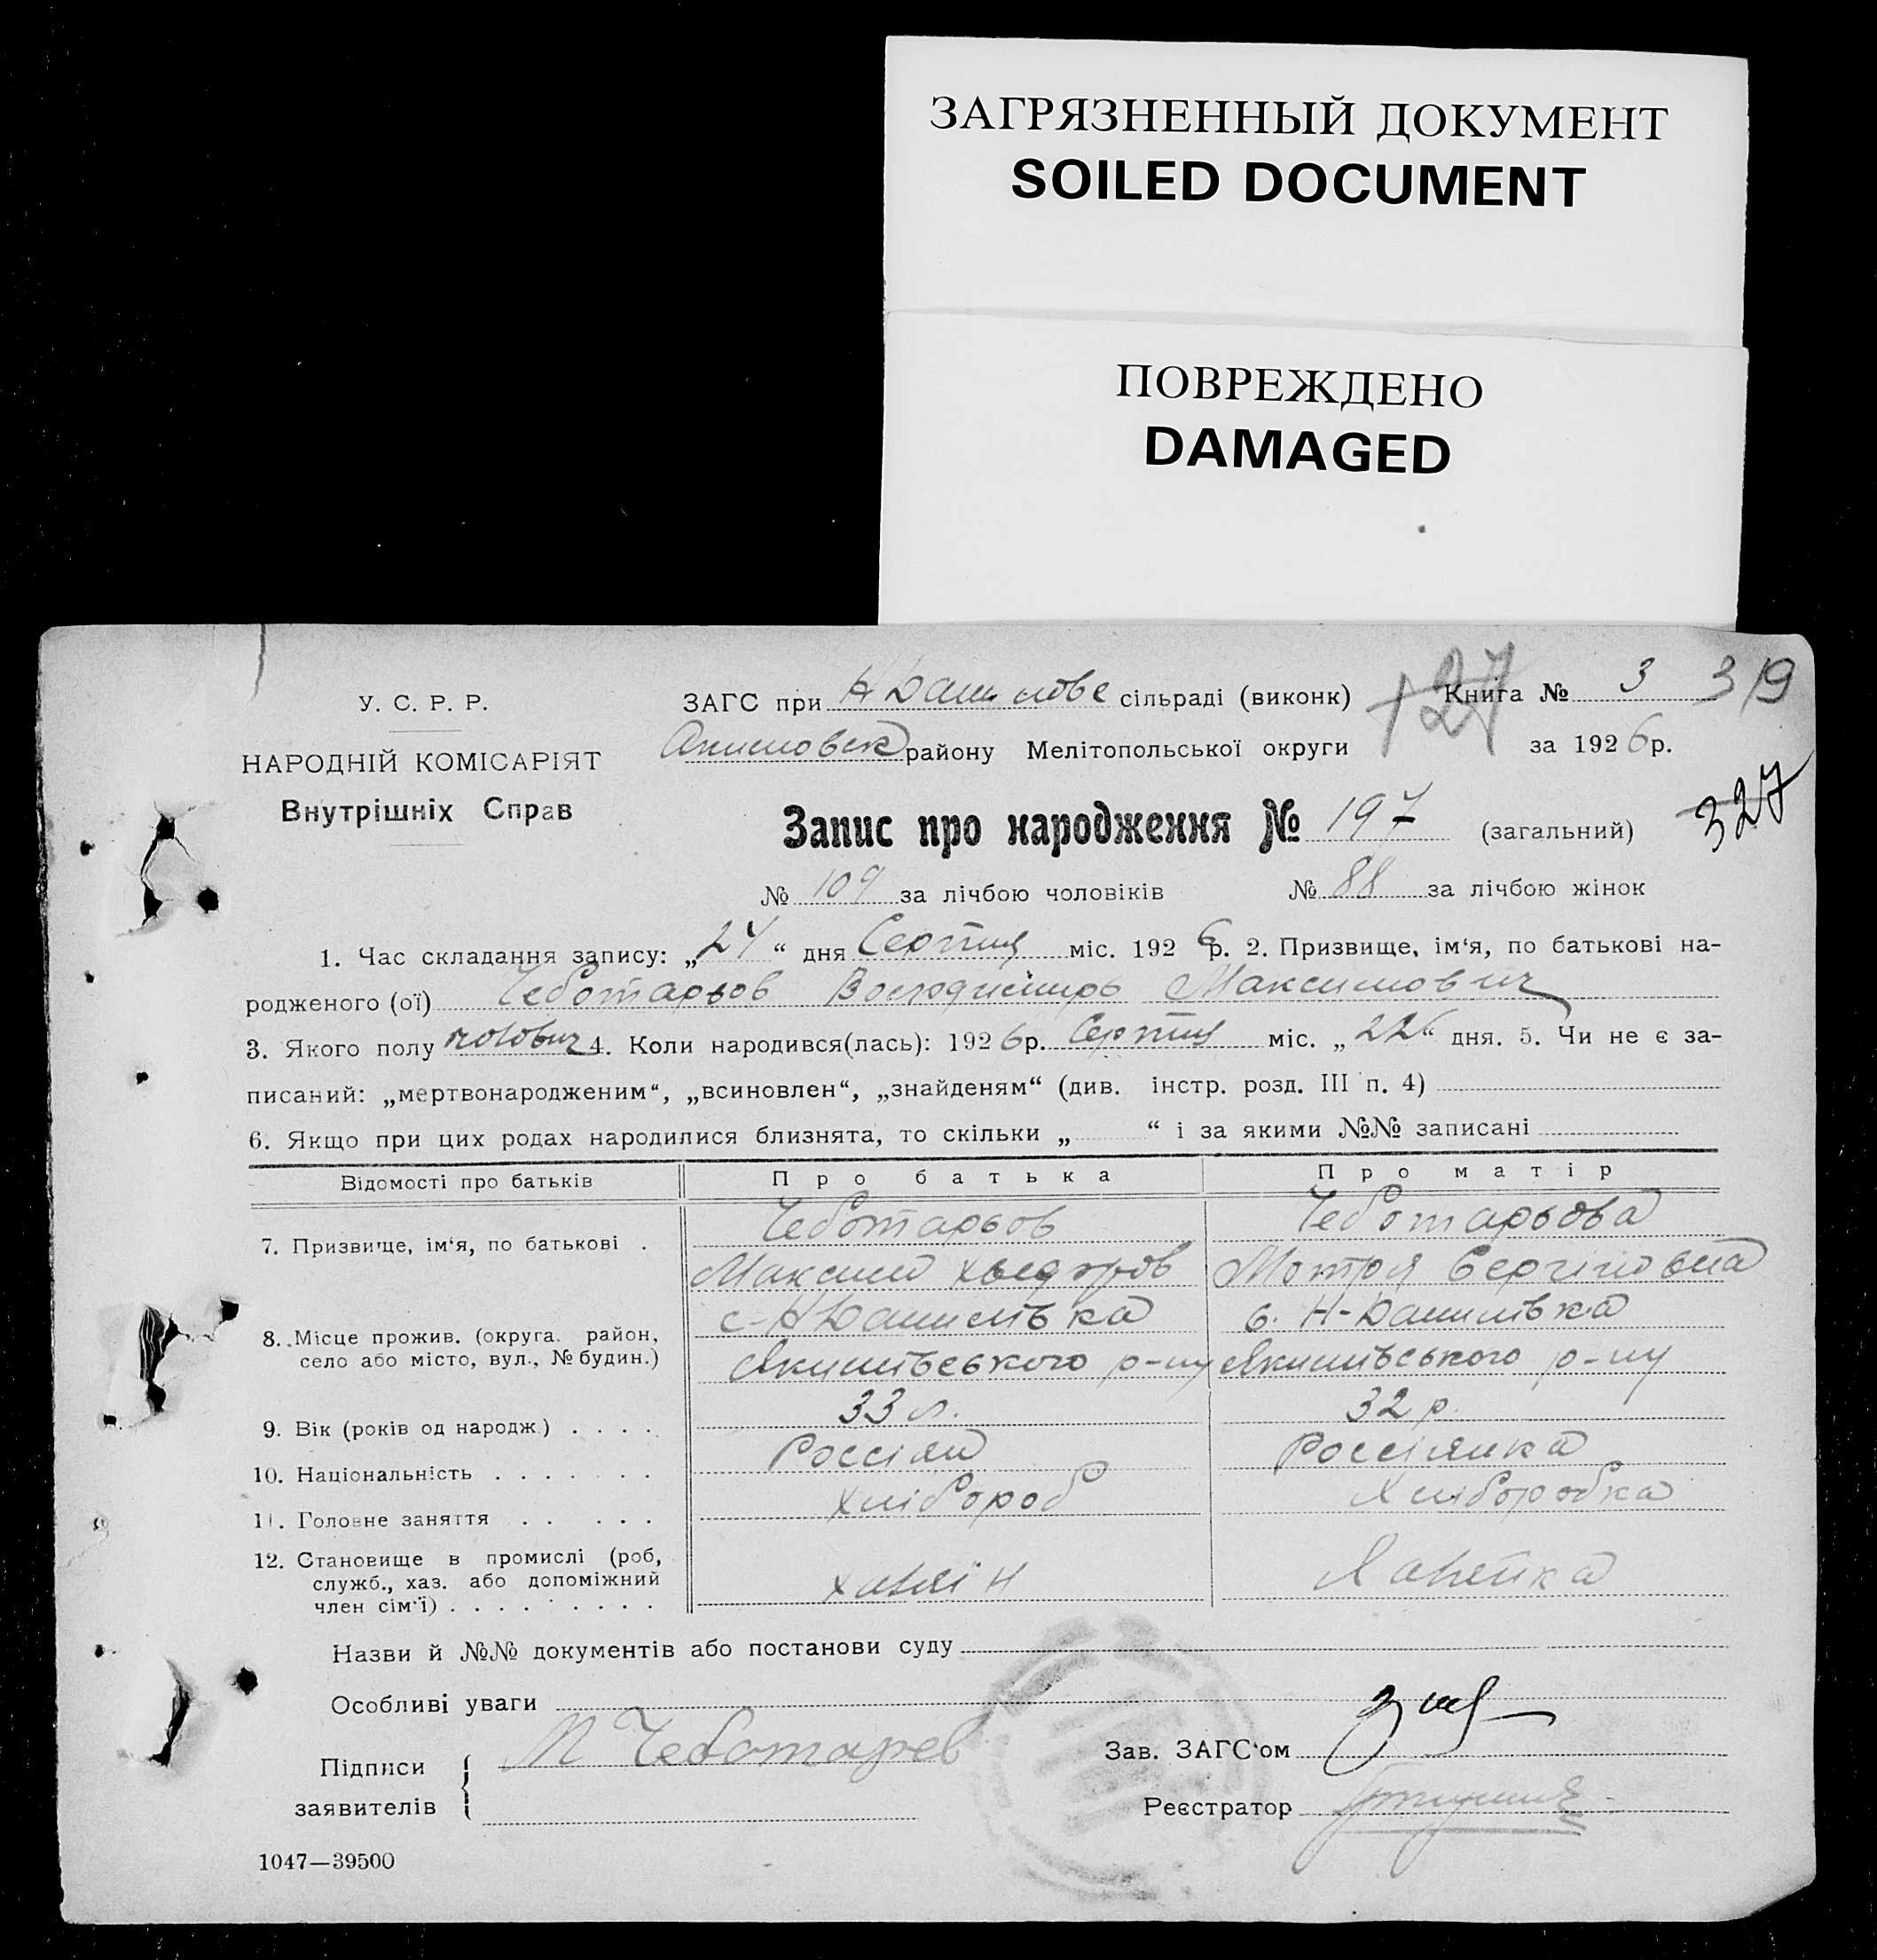 ЗАГРЯЗНЕННЫЙ ДОКУМЕНТ
SOILED DOCUMENT
ПОВРЕЖДЕНО
DAMAGED
У. С. Р. Р.
НАРОДНІЙ КОМІСАРІЯТ
Внутрішніх Справ
ЗАГС при Н Данилове сільраді (виконк) 127 Книга № 3 319
Акимовск району Мелітопольської округи за 1926 р.
327
Запис про народження № 197 (загальний)
№ 109 за лічбою чоловіків № 88 за лічбою жінок
1. Час складання запису: „24“ дня Серпня міс. 1926 р. 2. Призвище, ім‘я, по батькові на-
родженого (ої) Чеботарьов Володимирь Максимович
3. Якого полу чолович 4. Коли народився(лась): 1926 р. Серпня міс. „22“ дня. 5. Чи не є за-
писаний: „мертвонародженим“, „всиновлен“, „знайденям“ (див. інстр. розд. III п. 4)
6. Якщо при цих родах народилися близнята, то скільки „ “ і за якими №№ записані
Відомості про батьків Про батька Про матір
7. Призвище, ім‘я, по батькові . Чеботарьов Чеботарьова
Максим Хведоров Мотря Сергіївна
8. Місце прожив. (округа. район, с-Н Данилівка с. Н-Данилівка
село або місто, вул., № будин.) Якимівського р-ну Якимівського р-ну
9. Вік (років од народж.) . . . . 33 р. 32 р.
10. Національність . . . . . . . Россіян Россіянка
11. Головне заняття . . . . . Хлібороб Хліборобка
12. Становище в промислі (роб,
служб., хаз. або допоміжний
член сім‘ї) . . . . . . . . .
Назви й №№ документів або постанови суду
Особливі уваги
Підписи М Чеботарев Зав. ЗАГС‘ом
заявителів Реєстратор
1047—39500